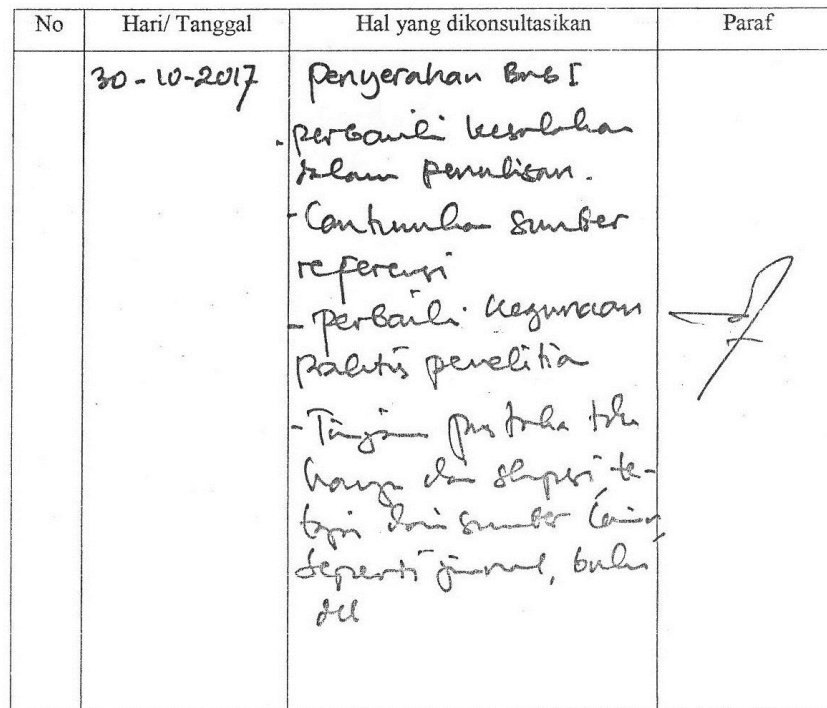 No Hari/ Tanggal Hal yang dikonsultasikan Paraf
30-10-2017 Penyerahan Bab I
- perbaiki kesalahan
dalam penulisan.
- Cantumkan sumber
referensi
- perbaiki kegunaan
praktis penelitian
- Tinjauan pustaka tdk
hanya dari skripsi te-
tapi dari sumber lain
seperti jurnal, buku
dll